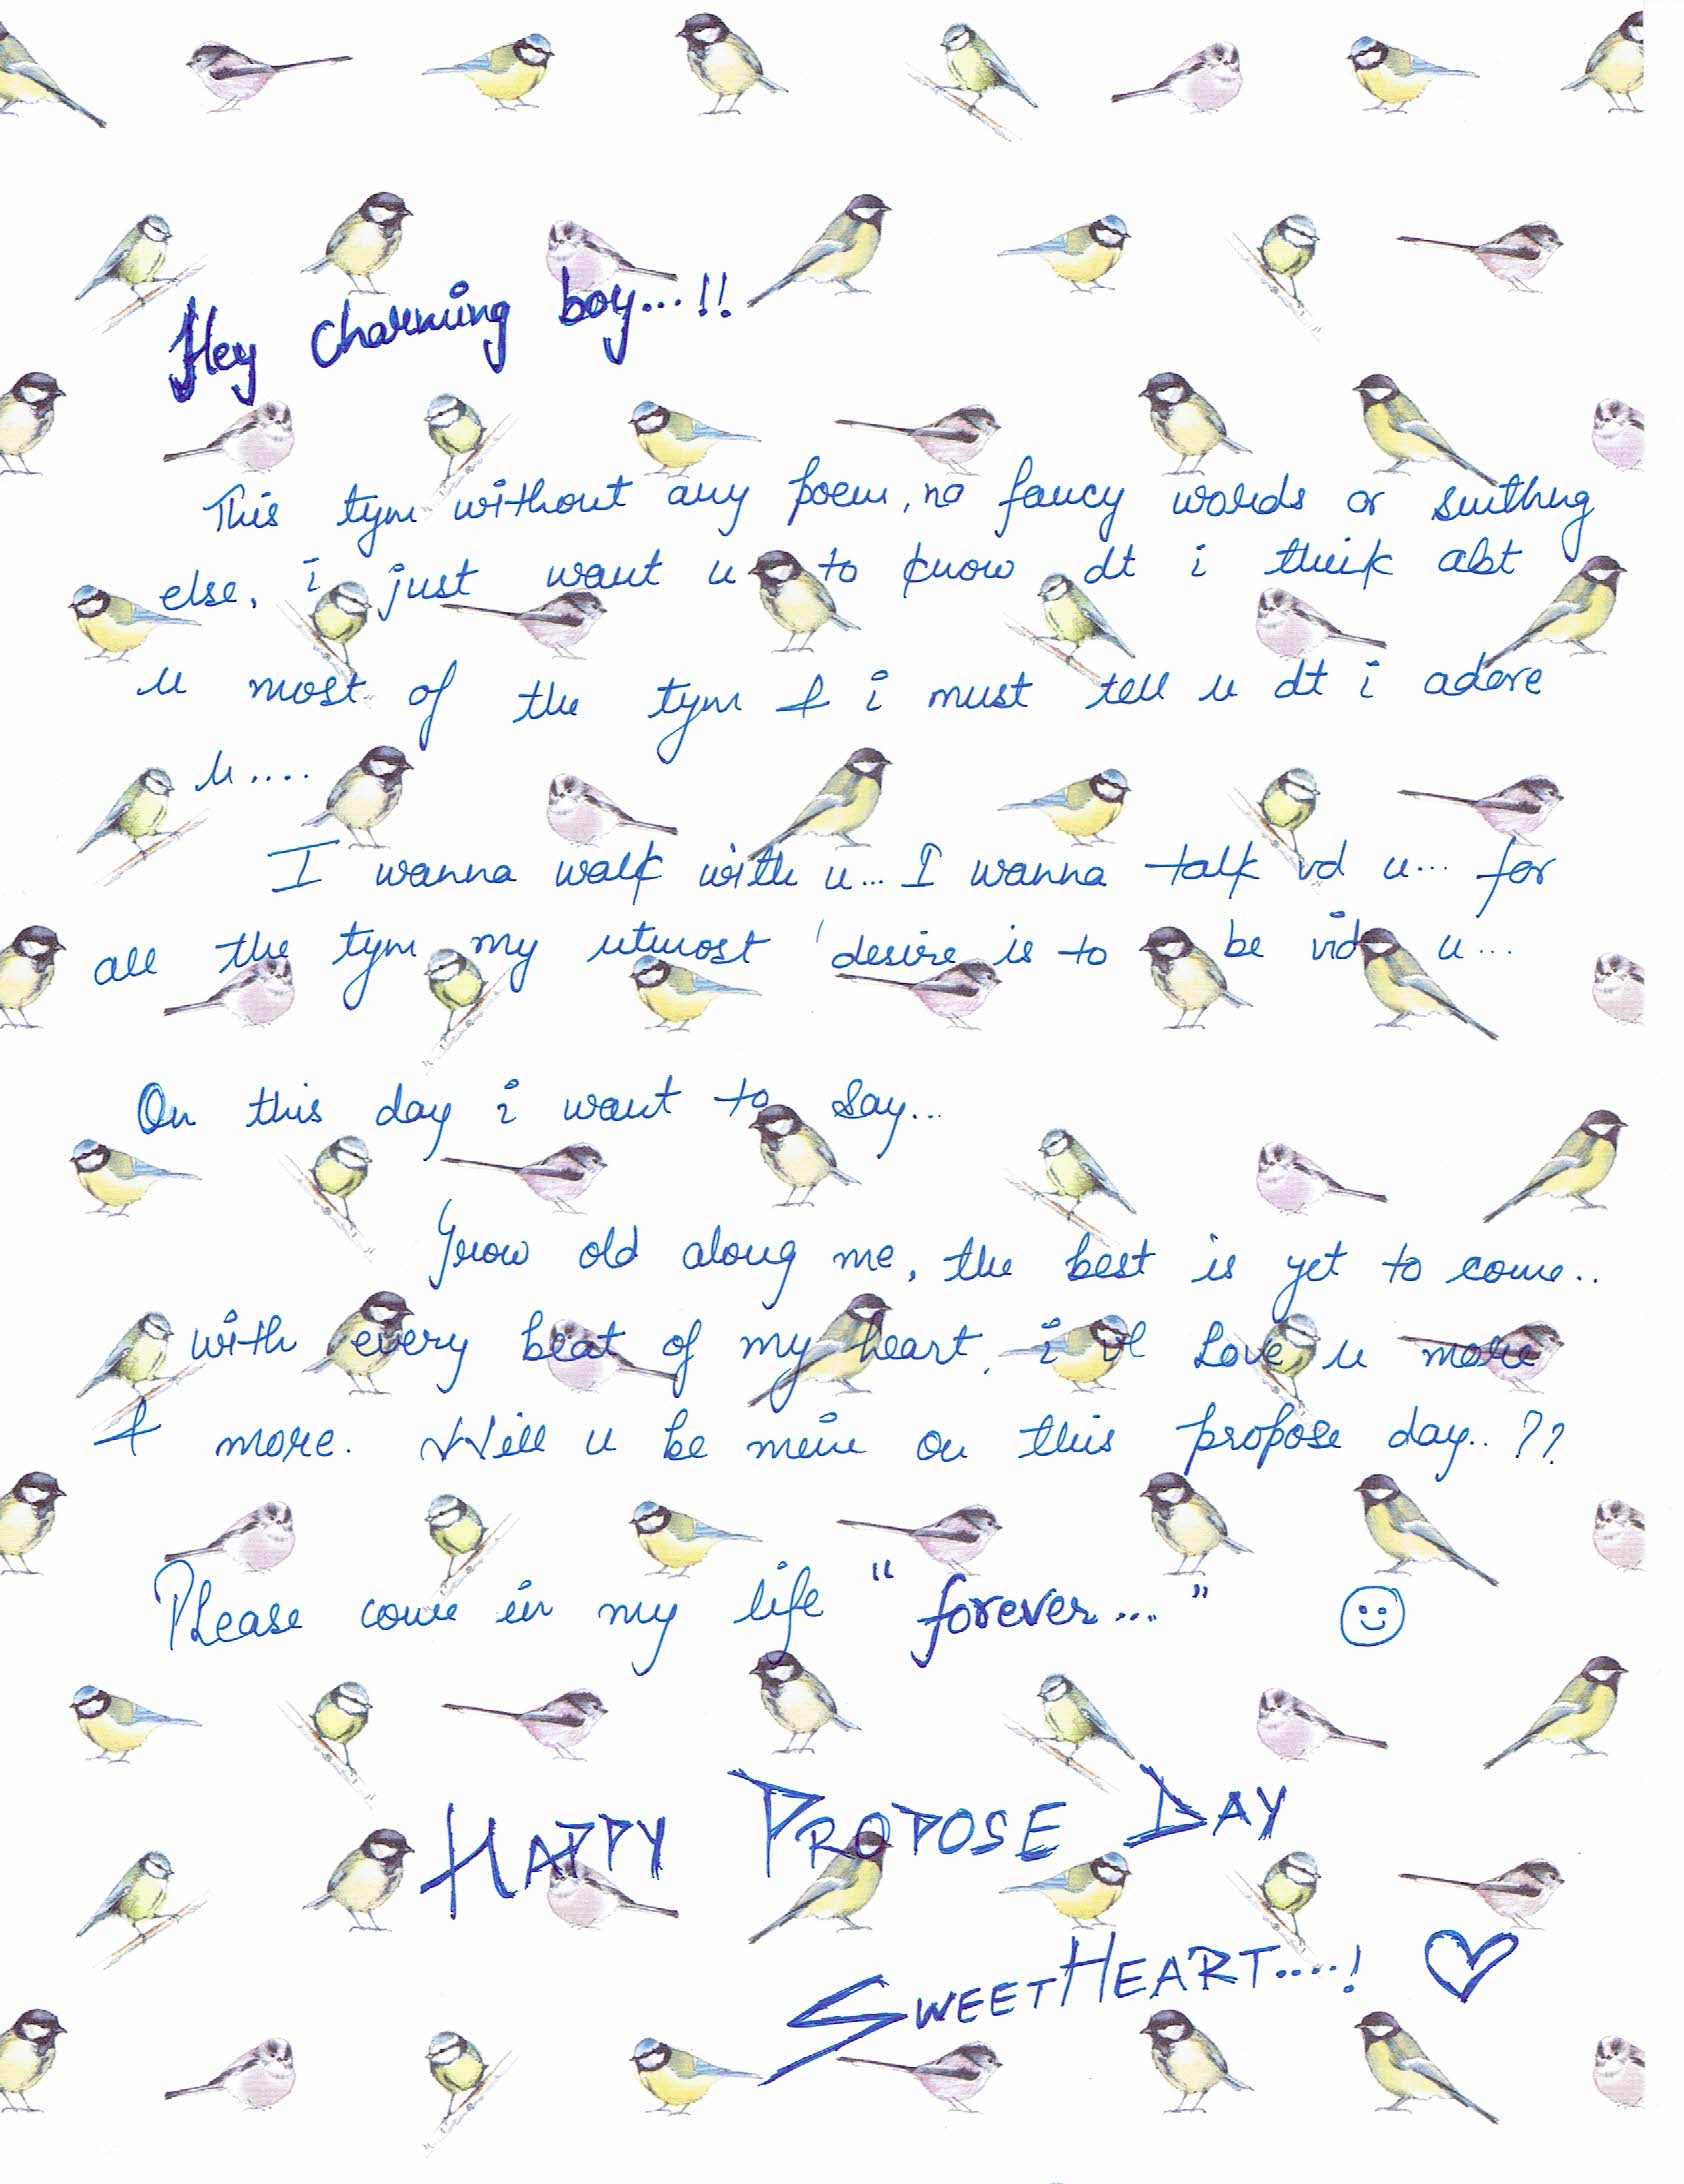 Hey charming boy...!!
This tym without any poem, no fancy words or smthng
else, i just want u to know dt i think abt
u most of the tym & i must tell u dt i adore
u....
I wanna walk with u... I wanna talk vd u... for
all the tym my utmost desire is to be vid u...
On this day i want to say...
Grow old along me, the best is yet to come..
with every beat of my heart, i'l Love u more
& more. Will u be mine on this propose day..??
Please come in my life "forever..."
HAPPY PROPOSE DAY
SWEETHEART....!